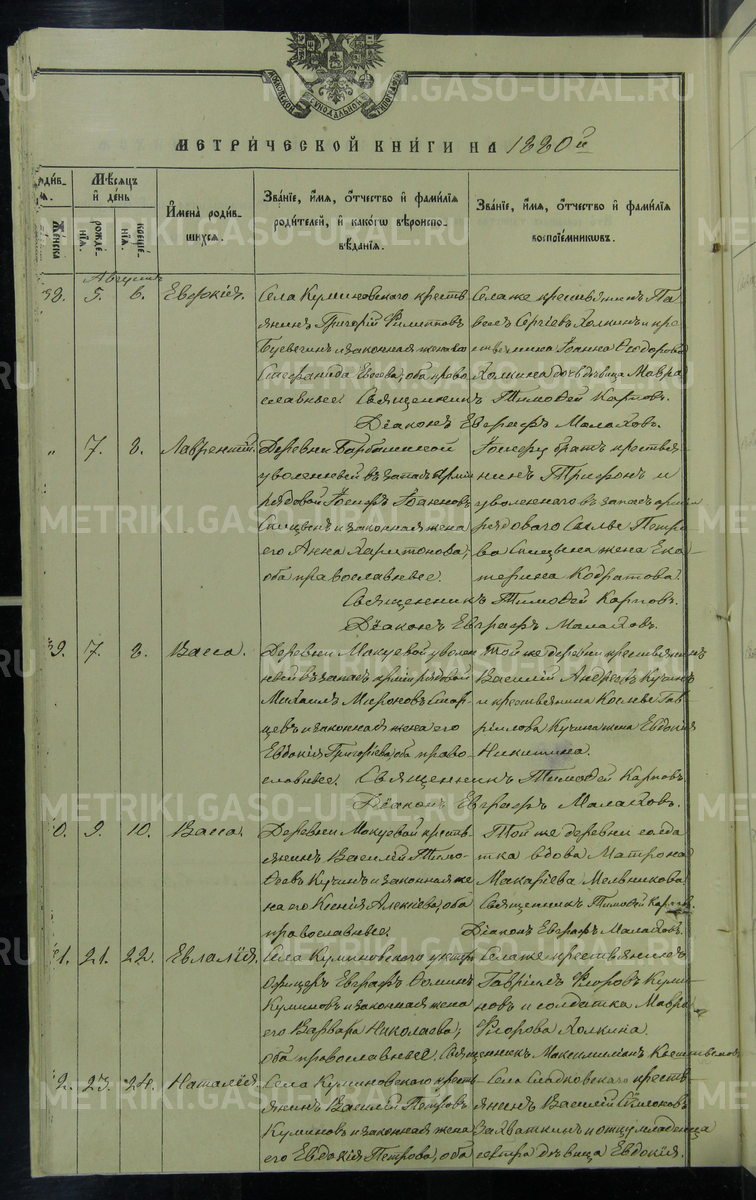 МЕТРИ́ЧЕСКОЙ КНИ́ГИ НА 1880й
Мѣ́сяцъ и день
Имена́ роди́вшихся.
Зва́нїе, и́мя, о́тчество и фами́лїя роди́телей, и како́гω вѣроисповѣ́данїя.
Зва́нїе, и́мя, о́тчество и фами́лїя воспрїе́мниковъ.
Же́нска
рожде́нїя.
креще́нїя.
Августъ
38. 5. 6. Евдокія. Села Куминовскаго крестьянинъ Григорій Филипповъ и законная жена его Стефанида Евсеева, оба православные.
Села же крестьянинъ Павелъ Сергіевъ Холкинъ и крестьянина Іоанна Ѳеодорова Холкина дочь дѣвица Мавра
Священникъ Тимоѳей Карповъ.
Діаконъ Евграфъ Малаховъ.
„ 7. 8. Лаврентій. Деревни уволенный въ запасъ арміи рядовой Іосифъ Іоанновъ Спицынъ и законная жена его Анна Харитонова, оба православные.
Іосифу братъ крестьянинъ Трифонъ и уволеннаго въ запасъ арміи рядоваго Петрова Спицына жена Екатерина Кодратова.
Священникъ Тимоѳей Карповъ.
Діаконъ Евграфъ Малаховъ.
39. 7. 8. Васса. Деревни Мокуевой уволенный въ запасъ арміи рядовой Михаилъ Мироновъ Старцевъ и законная жена его Евдокія Григоріева, оба православные.
Той же деревни крестьянинъ Василій Андреевъ Кучинъ и крестьянина Космы Гаврилова Кучина жена Евдокія Никитина.
Священникъ Тимоѳей Карповъ
Діаконъ Евграфъ Малаховъ.
0. 9. 10. Васса. Деревни Мокуевой крестьянинъ Василій Тимоѳеевъ Кучинъ и законная жена его Ксенія Алексіева, оба православные.
Той же деревни солдатка вдова Матрона Макаріева Мельникова.
Священникъ Тимоѳей Карповъ.
Діаконъ Евграфъ Малаховъ.
1. 21. 22. Евлалія. Села Куминовскаго унтеръ Офицеръ Евграфъ Ѳоминъ Куминовъ и законная жена его Варвара Николаева, оба православные.
Села же крестьянинъ Гавріилъ Флоровъ Куминовъ и солдатка Мавра Флорова Холкина.
Священникъ Максимиліанъ
2. 23. 24. Наталія. Села Куминовскаго крестьянинъ Василій Петровъ Куминовъ и законная жена его Евдокія Петрова, оба
Села Сладковскаго крестьянинъ Василій Захваткинъ и отцу младенца сестра дѣвица Евдокія.
METRIKI.GASO-URAL.RU